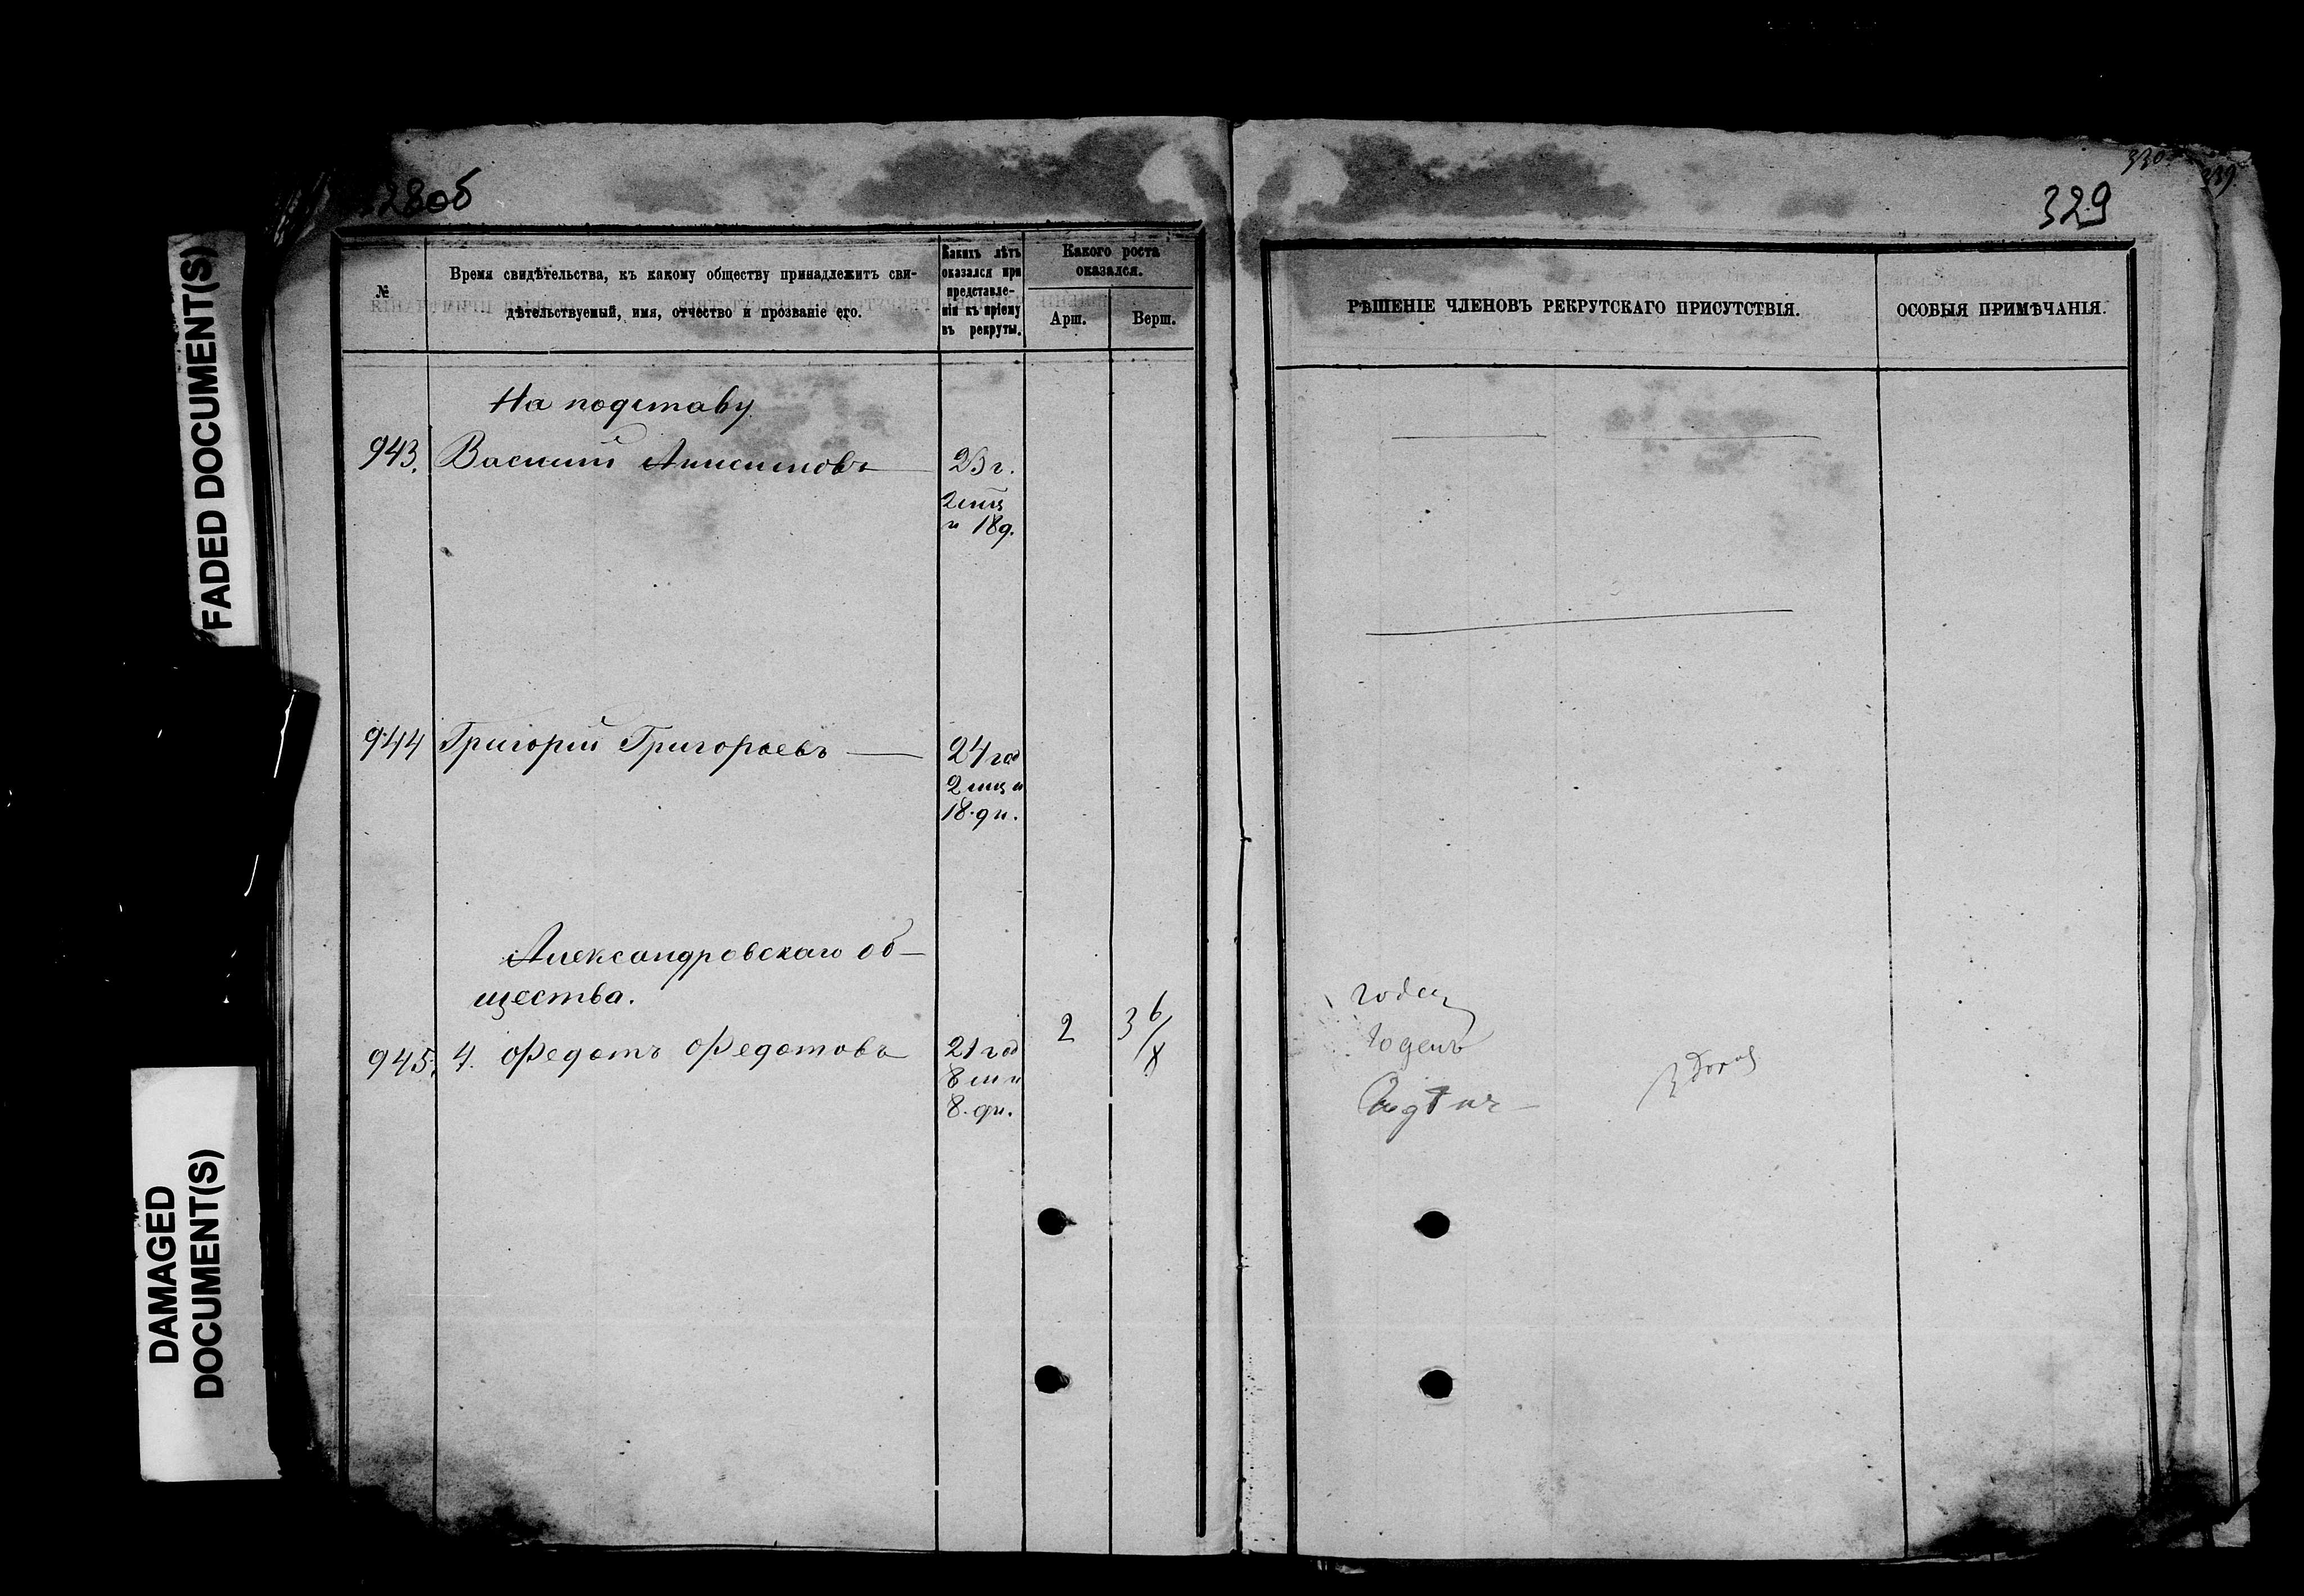 28об
330
329
№
Время свидѣтельства, къ какому обществу принадлежитъ сви-
дѣтельствуемый, имя, отчество и прозваніе его.
Какихъ лѣтъ
оказался при
представле-
ніи къ пріему
въ рекруты.
Какого роста
оказался.
Арш.
Верш.
РѢШЕНІЕ ЧЛЕНОВЪ РЕКРУТСКАГО ПРИСУТСТВІЯ.
ОСОБЫЯ ПРИМѢЧАНІЯ.
На подставу
943. Василий Анисимовъ 23 г.
2 мц
и 18 д.
944 Григорий Григорьевъ 24 год
2 мц и
18. дн.
Александровскаго об-
щества.
945. 4. Федотъ Федотовъ 21 год 2 3 6/8
8 м и
8. дн.
годен
годенъ
FADED DOCUMENT(S)
DAMAGED
DOCUMENT(S)